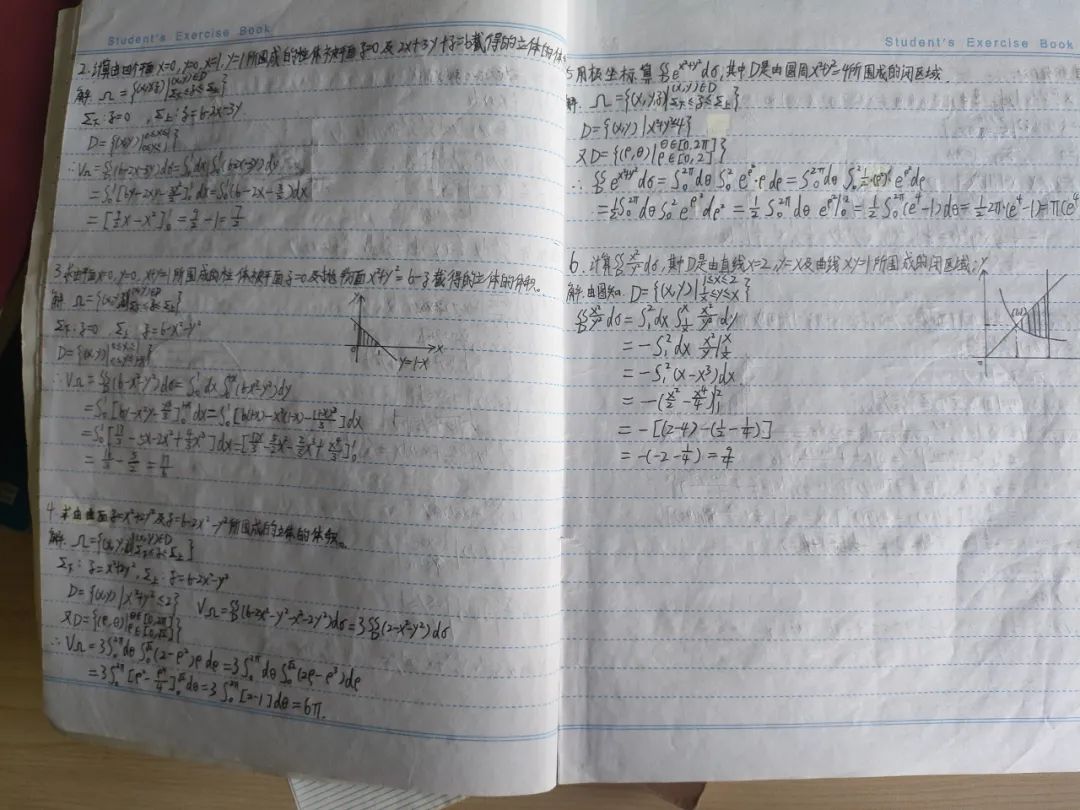 Student's Exercise Book
2.计算由四个平面x=0,y=0,x=1,y=1所围成的柱体被平面z=0及2x+3y+z=6截得的立体的体
解 Ω={(x,y,z)|(x,y)∈D Σ下≤z≤Σ上}
Σ下:z=0 ,Σ上:z=6-2x-3y
D={(x,y)|0≤x≤1 0≤y≤1}
∴VΩ=∬D(6-2x-3y)dσ=∫₀¹dx∫₀¹(6-2x-3y)dy
=∫₀¹[6y-2xy-3y²/2]₀¹dx=∫₀¹(6-2x-3/2)dx
=[9/2x-x²]₀¹=9/2-1=7/2
3.求由平面x=0,y=0,x+y=1所围成的柱体被平面z=0及抛物面x²+y²=6-z截得的立体的体积。
解 Ω={(x,y,z)|(x,y)∈D}
Σ下:z=0 Σ上:z=6-x²-y²
D={(x,y)|0≤x≤1 0≤y≤1-x}
y
x
0
y=1-x
∴VΩ=∬D(6-x²-y²)dσ=∫₀¹dx∫₀¹⁻ˣ(6-x²-y²)dy
=∫₀¹[6y-x²y-y³/3]₀¹⁻ˣdx=∫₀¹[6(1-x)-x²(1-x)-(1-x)³/3]dx
=17/3-5/2=17/6
4.求由曲面z=x²+2y²及z=6-2x²-y²所围成的立体的体积。
解 Ω={(x,y,z)|(x,y)∈D Σ下≤z≤Σ上}
Σ下:z=x²+2y²,Σ上:z=6-2x²-y²
D={(x,y)|x²+y²≤2} VΩ=∬D(6-2x²-y²-x²-2y²)dσ=3∬D(2-x²-y²)dσ
又D={(ρ,θ)|θ∈[0,2π] ρ∈[0,√2]}
∴VΩ=3∫₀²πdθ∫₀√2(2-ρ²)ρdρ=3∫₀²πdθ∫₀√2(2ρ-ρ³)dρ
=3∫₀²π[ρ²-ρ⁴/4]₀√2dθ=3∫₀²π[2-1]dθ=6π.
Student's Exercise Book
5.用极坐标算∬D e^(x²+y²)dσ,其中D是由圆周x²+y²=4所围成的闭区域.
解. Ω={(x,y,z)|(x,y)∈D Σ下≤z≤Σ上}
D={(x,y)|x²+y²≤4}
又D={(ρ,θ)|θ∈[0,2π] ρ∈[0,2]}
∴∬D e^(x²+y²)dσ=∫₀²πdθ∫₀²e^ρ²·ρdρ=∫₀²πdθ∫₀² e^ρ²dρ
=½∫₀²πdθ∫₀²e^ρ²dρ²=½∫₀²πdθ e^ρ²|₀²=½∫₀²π(e⁴-1)dθ=½2π·(e⁴-1)=π(e⁴
6.计算∬D x²/y²dσ,其中D是由直线x=2,y=x及曲线xy=1所围成的闭区域.
解:由图知. D={(x,y)|1≤x≤2 1/x≤y≤x}
y
(1,1)
∬D x²/y²dσ=∫₁²dx∫ x²/y²dy
=-∫₁²dx x²/y|
=-∫₁²(x-x³)dx
=-(x²/2-x⁴/4)|₁²
=-[(2-4)-(½-¼)]
=-(-2-¼)=9/4